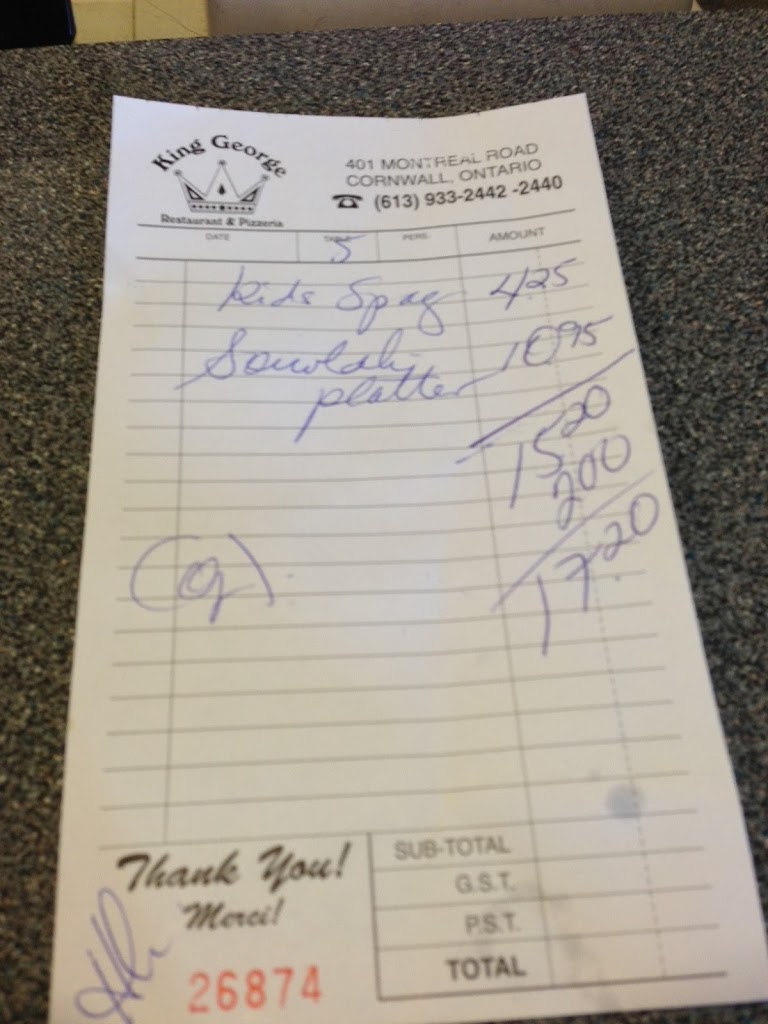 King George
Restaurant & Pizzeria
401 MONTREAL ROAD
CORNWALL, ONTARIO
☎ (613) 933-2442 -2440
DATE TABLE PERS. AMOUNT
5
Kids Spag 4.25
Souvlaki 10.95
platter
15.20
2.00
17.20
Thank You!
Merci!
26874
SUB-TOTAL
G.S.T.
P.S.T.
TOTAL